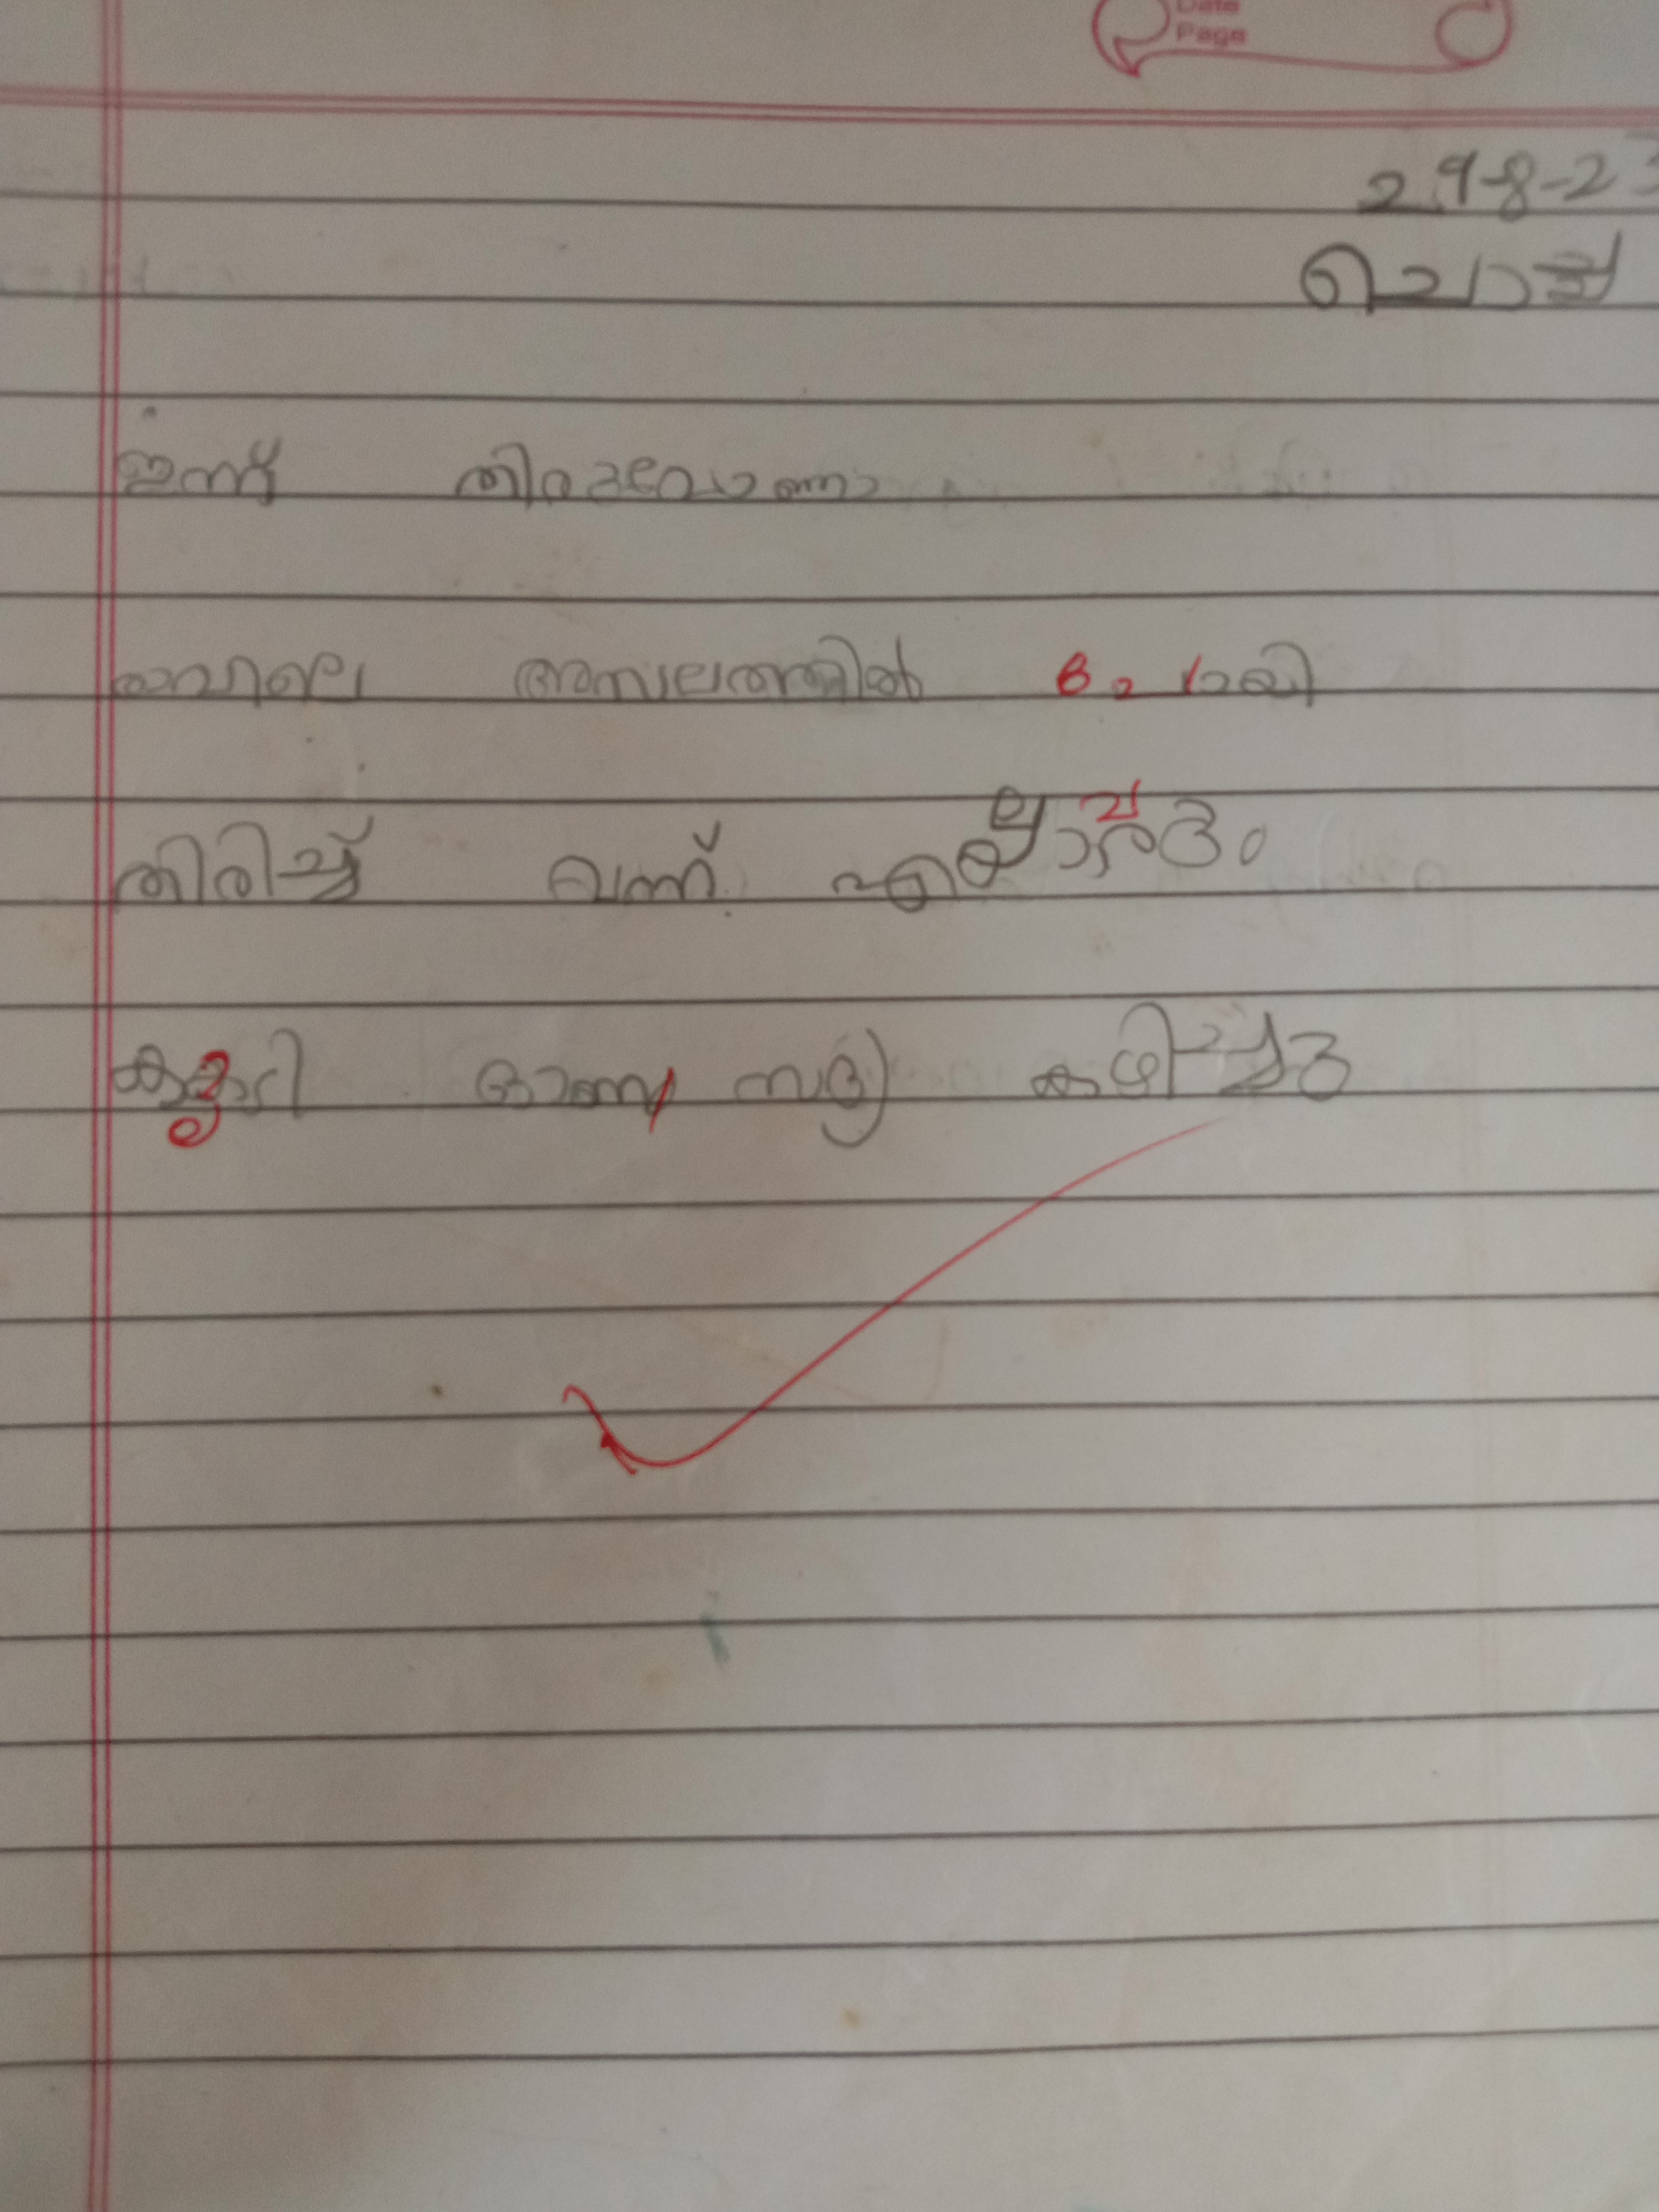 Date
Page
29-8-23
ചൊവ്വ
ഇന്ന് തിരുവോണം
രാവിലെ അമ്പലത്തിൽ പോയി
തിരിച്ച് വന്ന് എല്ലാവരും
കൂടി ഓണ സദ്യ കഴിച്ചു